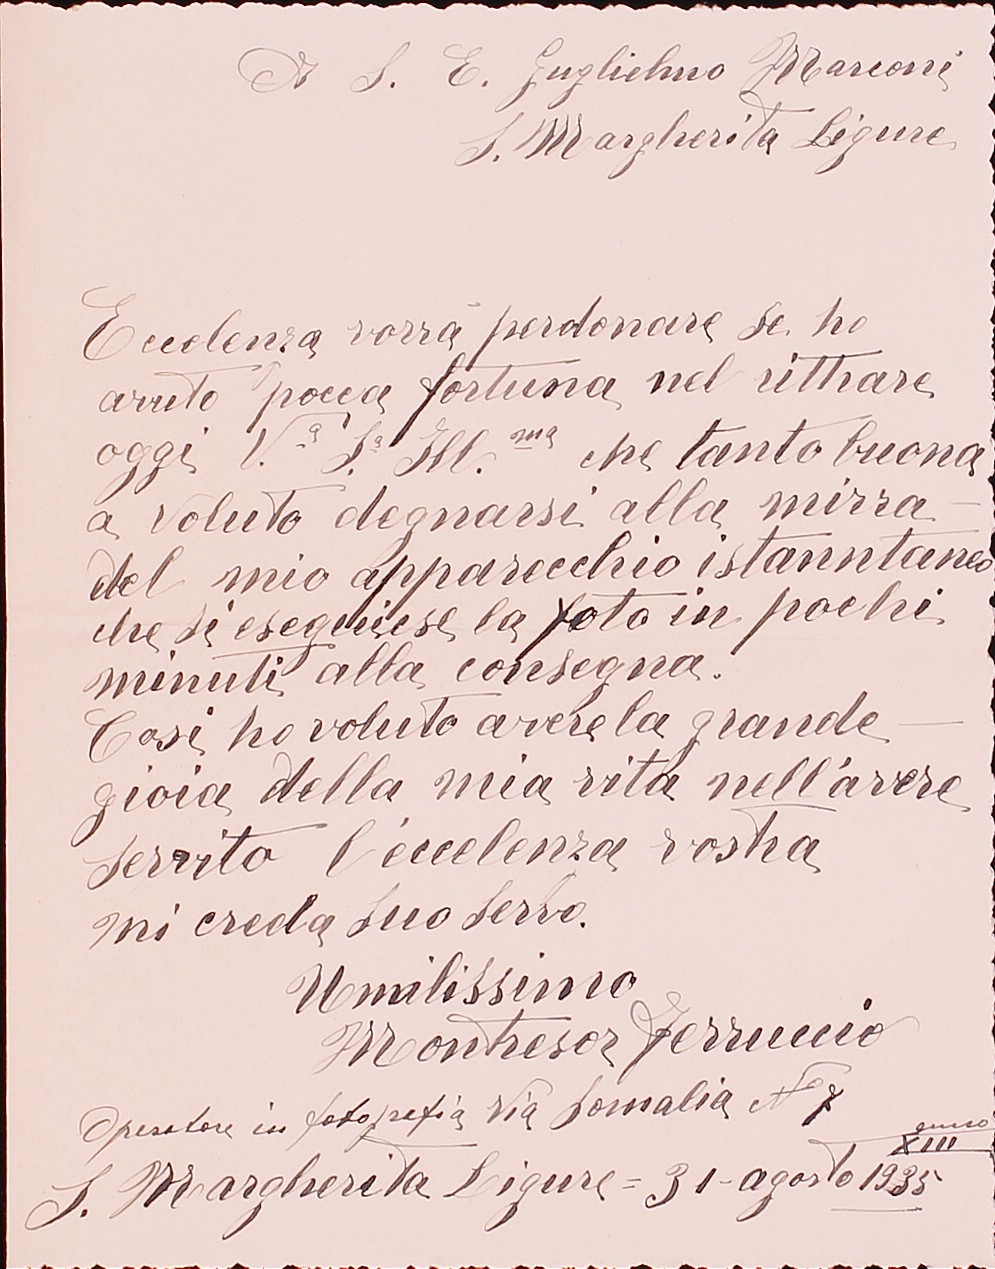 A S. E. Guglielmo Marconi
S. Margherita Ligure
Eccelenza vorrà perdonare se ho
avuto pocca fortuna nel rittrare
oggi V.ª S.ª Ill.ma che tanto buona
a voluto degnarsi alla mirra
del mio apparecchio istanntaneo
che si eseguiese la foto in pochi
minuti alla consegna.
Cosi ho voluto avere la grande
gioia della mia vita nell'avere
servito l'eccelenza vostra
mi creda suo servo.
Umilissimo
Montresor Ferruccio
Operatore in fotografia Via Somalia N 7
S. Margherita Ligure = 31 - agosto 1935
XIII